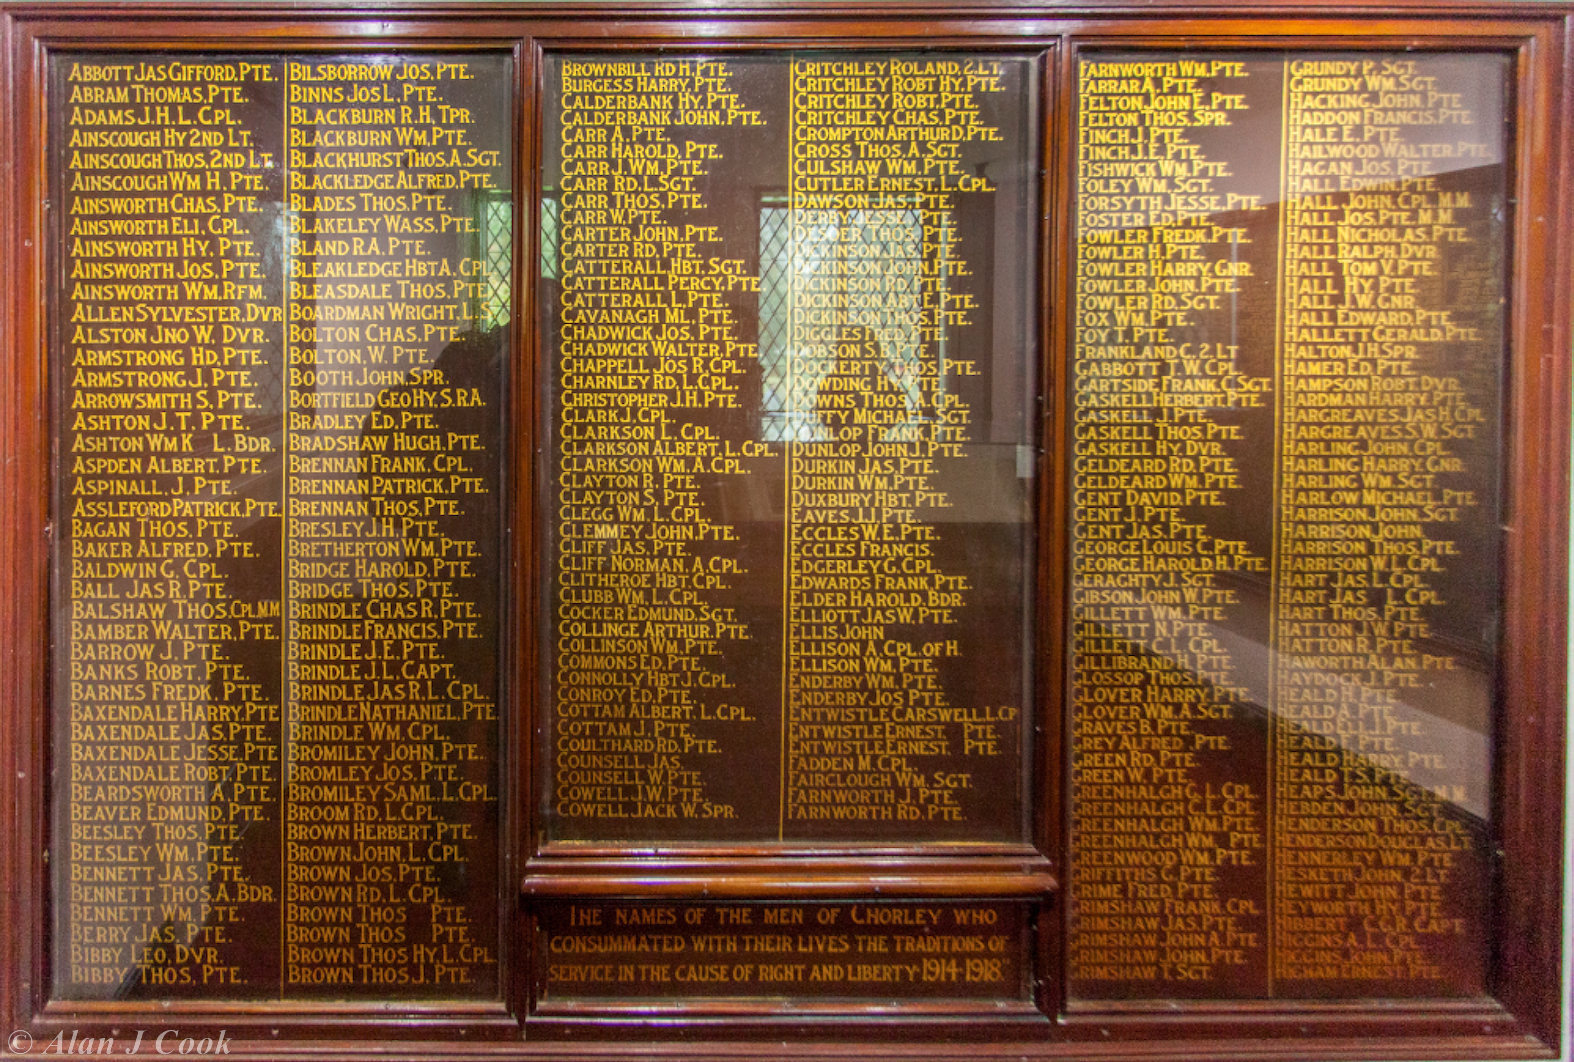 ABBOTT JAS GIFFORD, PTE.
ABRAM THOMAS, PTE.
ADAMS J.H.L. CPL.
AINSCOUGH HY 2ND LT.
AINSCOUGH THOS, 2ND LT.
AINSCOUGH WM H, PTE.
AINSWORTH CHAS, PTE.
AINSWORTH ELI, CPL.
AINSWORTH HY, PTE.
AINSWORTH JOS, PTE.
AINSWORTH WM, RFM.
ALLEN SYLVESTER, DVR
ALSTON JNO W, DVR.
ARMSTRONG HD, PTE.
ARMSTRONG J, PTE.
ARROWSMITH S, PTE.
ASHTON J.T. PTE.
ASHTON WM K L. BDR.
ASPDEN ALBERT, PTE.
ASPINALL, J, PTE.
ASSLEFORD PATRICK, PTE.
BAGAN THOS, PTE.
BAKER ALFRED, PTE.
BALDWIN G, CPL.
BALL JAS R, PTE.
BALSHAW THOS, CPL, M.M
BAMBER WALTER, PTE.
BARROW J, PTE.
BANKS ROBT, PTE.
BARNES FREDK, PTE.
BAXENDALE HARRY, PTE
BAXENDALE JAS, PTE.
BAXENDALE JESSE, PTE
BAXENDALE ROBT, PTE.
BEARDSWORTH A, PTE.
BEAVER EDMUND, PTE.
BEESLEY THOS, PTE.
BEESLEY WM, PTE.
BENNETT JAS, PTE.
BENNETT THOS, A. BDR.
BENNETT WM, PTE.
BERRY JAS, PTE.
BIBBY LEO, DVR.
BIBBY THOS, PTE.
BILSBORROW JOS, PTE.
BINNS JOS L, PTE.
BLACKBURN R.H, TPR.
BLACKBURN WM, PTE.
BLACKHURST THOS, A. SGT.
BLACKLEDGE ALFRED, PTE.
BLADES THOS, PTE.
BLAKELEY WASS, PTE.
BLAND R.A. PTE.
BLEAKLEDGE HBT A, CPL
BLEASDALE THOS, PTE
BOARDMAN WRIGHT, L.S.
BOLTON CHAS, PTE.
BOLTON, W. PTE.
BOOTH JOHN, SPR.
BORTFIELD GEO HY, S.R.A.
BRADLEY ED, PTE.
BRADSHAW HUGH, PTE.
BRENNAN FRANK, CPL.
BRENNAN PATRICK, PTE.
BRENNAN THOS, PTE.
BRESLEY J.H, PTE.
BRETHERTON WM, PTE.
BRIDGE HAROLD, PTE.
BRIDGE THOS, PTE.
BRINDLE CHAS R, PTE.
BRINDLE FRANCIS, PTE.
BRINDLE J.E, PTE.
BRINDLE J.L, CAPT.
BRINDLE JAS R, L. CPL.
BRINDLE NATHANIEL, PTE.
BRINDLE WM, CPL.
BROMILEY JOHN, PTE.
BROMLEY JOS, PTE.
BROMILEY SAML, L. CPL.
BROOM RD, L. CPL.
BROWN HERBERT, PTE.
BROWN JOHN, L. CPL.
BROWN JOS, PTE.
BROWN RD, L. CPL.
BROWN THOS PTE.
BROWN THOS PTE.
BROWN THOS HY, L. CPL
BROWN THOS J, PTE.
BROWNBILL RD H, PTE.
BURGESS HARRY, PTE.
CALDERBANK HY, PTE.
CALDERBANK JOHN, PTE.
CARR A, PTE.
CARR HAROLD, PTE.
CARR J. WM, PTE.
CARR RD, L. SGT.
CARR THOS, PTE.
CARR W. PTE.
CARTER JOHN, PTE.
CARTER RD, PTE.
CATTERALL HBT, SGT.
CATTERALL PERCY, PTE.
CATTERALL L, PTE.
CAVANAGH ML, PTE.
CHADWICK, JOS, PTE.
CHADWICK WALTER, PTE.
CHAPPELL JOS R, CPL.
CHARNLEY RD, L. CPL.
CHRISTOPHER J.H, PTE.
CLARK J. CPL.
CLARKSON L. CPL.
CLARKSON ALBERT, L. CPL.
CLARKSON WM, A. CPL.
CLAYTON R, PTE.
CLAYTON S, PTE.
CLEGG WM, L. CPL.
CLEMMEY JOHN, PTE.
CLIFF JAS, PTE.
CLIFF NORMAN, A. CPL.
CLITHEROE HBT, CPL.
CLUBB WM, L. CPL.
COCKER EDMUND, SGT.
COLLINGE ARTHUR, PTE.
COLLINSON WM, PTE.
COMMONS ED, PTE.
CONNOLLY HBT J, CPL.
CONROY ED, PTE.
COTTAM ALBERT, L. CPL.
COTTAM J, PTE.
COULTHARD RD, PTE.
COUNSELL JAS.
COUNSELL W. PTE.
COWELL J.W. PTE.
COWELL JACK W. SPR.
CRITCHLEY ROLAND, 2. LT.
CRITCHLEY ROBT HY, PTE.
CRITCHLEY ROBT, PTE.
CRITCHLEY CHAS, PTE.
CROMPTON ARTHUR D, PTE.
CROSS THOS, A. SGT.
CULSHAW WM, PTE.
CUTLER ERNEST, L. CPL.
DAWSON JAS, PTE.
DERBY JESSE, PTE.
DESOER THOS, PTE.
DICKINSON JAS, PTE.
DICKINSON JOHN, PTE.
DICKINSON RD, PTE.
DICKINSON ART E, PTE.
DICKINSON THOS, PTE.
DIGGLES FRED, PTE.
DOBSON S.B, PTE.
DOCKERTY THOS, PTE.
DOWDING HY, PTE.
DOWNS THOS, A. CPL.
DUFFY MICHAEL, SGT.
DUNLOP FRANK, PTE.
DUNLOP JOHN J, PTE.
DURKIN JAS, PTE.
DURKIN WM, PTE.
DUXBURY HBT, PTE.
EAVES J.J, PTE.
ECCLES W.E, PTE.
ECCLES FRANCIS.
EDGERLEY G, CPL.
EDWARDS FRANK, PTE.
ELDER HAROLD, BDR.
ELLIOTT JAS W, PTE.
ELLIS JOHN
ELLISON A, CPL. OF H.
ELLISON WM, PTE.
ENDERBY WM, PTE.
ENDERBY JOS PTE.
ENTWISTLE CARSWELL, L. CP
ENTWISTLE ERNEST, PTE.
ENTWISTLE ERNEST, PTE.
FADDEN M, CPL.
FAIRCLOUGH WM, SGT.
FARNWORTH J, PTE.
FARNWORTH RD, PTE.
THE NAMES OF THE MEN OF CHORLEY WHO
CONSUMMATED WITH THEIR LIVES THE TRADITIONS OF
SERVICE IN THE CAUSE OF RIGHT AND LIBERTY 1914-1918."
FARNWORTH WM, PTE.
FARRAR A, PTE.
FELTON JOHN E, PTE.
FELTON THOS, SPR.
FINCH J, PTE.
FINCH J.E, PTE.
FISHWICK WM, PTE.
FOLEY WM, SGT.
FORSYTH JESSE, PTE.
FOSTER ED, PTE.
FOWLER FREDK, PTE.
FOWLER H, PTE.
FOWLER HARRY, GNR.
FOWLER JOHN, PTE.
FOWLER RD, SGT.
FOX WM, PTE.
FOY T, PTE.
FRANKLAND C, 2. LT
GABBOTT T.W. CPL.
GARTSIDE FRANK, C. SGT.
GASKELL HERBERT, PTE.
GASKELL J, PTE.
GASKELL THOS, PTE.
GASKELL HY, DVR.
GELDEARD RD, PTE.
GELDEARD WM, PTE.
GENT DAVID, PTE.
GENT J, PTE.
GENT JAS, PTE.
GEORGE LOUIS C, PTE.
GEORGE HAROLD, H, PTE.
GERAGHTY J, SGT.
GIBSON JOHN W, PTE.
GILLETT WM, PTE.
GILLETT N, PTE.
GILLETT C, L. CPL.
GILLIBRAND H, PTE.
GLOSSOP THOS, PTE.
GLOVER HARRY, PTE.
GLOVER WM, A. SGT.
GRAVES B, PTE.
GREY ALFRED, PTE.
GREEN RD, PTE.
GREEN W. PTE.
GREENHALGH G, L. CPL
GREENHALGH G, L. CPL
GREENHALGH WM, PTE
GREENHALGH WM, PTE
GREENWOOD WM, PTE.
GRIFFITHS G, PTE.
GRIME FRED, PTE.
GRIMSHAW FRANK, CPL
GRIMSHAW JAS, PTE.
GRIMSHAW JOHN A, PTE
GRIMSHAW JOHN, PTE.
GRIMSHAW T. SGT.
GRUNDY P, SGT.
GRUNDY WM, SGT.
HACKING JOHN, PTE
HADDON FRANCIS, PTE.
HALE E, PTE.
HAILWOOD WALTER, PTE.
HAGAN, JOS, PTE
HALL EDWIN, PTE.
HALL JOHN, CPL. M.M.
HALL JOS, PTE. M.M.
HALL NICHOLAS, PTE.
HALL RALPH, DVR
HALL TOM V, PTE.
HALL HY, PTE.
HALL J.W. GNR.
HALL EDWARD, PTE.
HALLETT GERALD, PTE.
HALTON, J.H, SPR.
HAMER ED, PTE.
HAMPSON ROBT, DVR.
HARDMAN HARRY, PTE.
HARGREAVES JAS H, CPL
HARGREAVES, S.W. SGT
HARLING JOHN, CPL.
HARLING HARRY, GNR.
HARLING WM, SGT.
HARLOW MICHAEL, PTE.
HARRISON, JOHN, SGT
HARRISON JOHN,
HARRISON THOS, PTE.
HARRISON W. L. CPL.
HART JAS, L. CPL.
HART JAS L. CPL.
HART THOS, PTE.
HATTON J.W, PTE.
HATTON R, PTE.
HAWORTH ALAN, PTE
HAYDOCK J, PTE.
HEALD H, PTE.
HEALD A, PTE.
HEALD ELI, J, PTE.
HEALD J, PTE.
HEALD HARRY, PTE.
HEALD T.S, PTE.
HEAPS JOHN, SGT, M.M.
HEBDEN JOHN, SGT
HENDERSON THOS, CPL
HENDERSON DOUGLAS, LT
HENNERLEY WM, PTE.
HESKETH JOHN, 2. LT
HEWITT JOHN, PTE
HEYWORTH HY, PTE
HIBBERT, C.G.R. CAPT
HIGGINS A, L. CPL.
HIGGINS JOHN, PTE.
HIGHAM ERNEST PTE.
© Alan J Cook